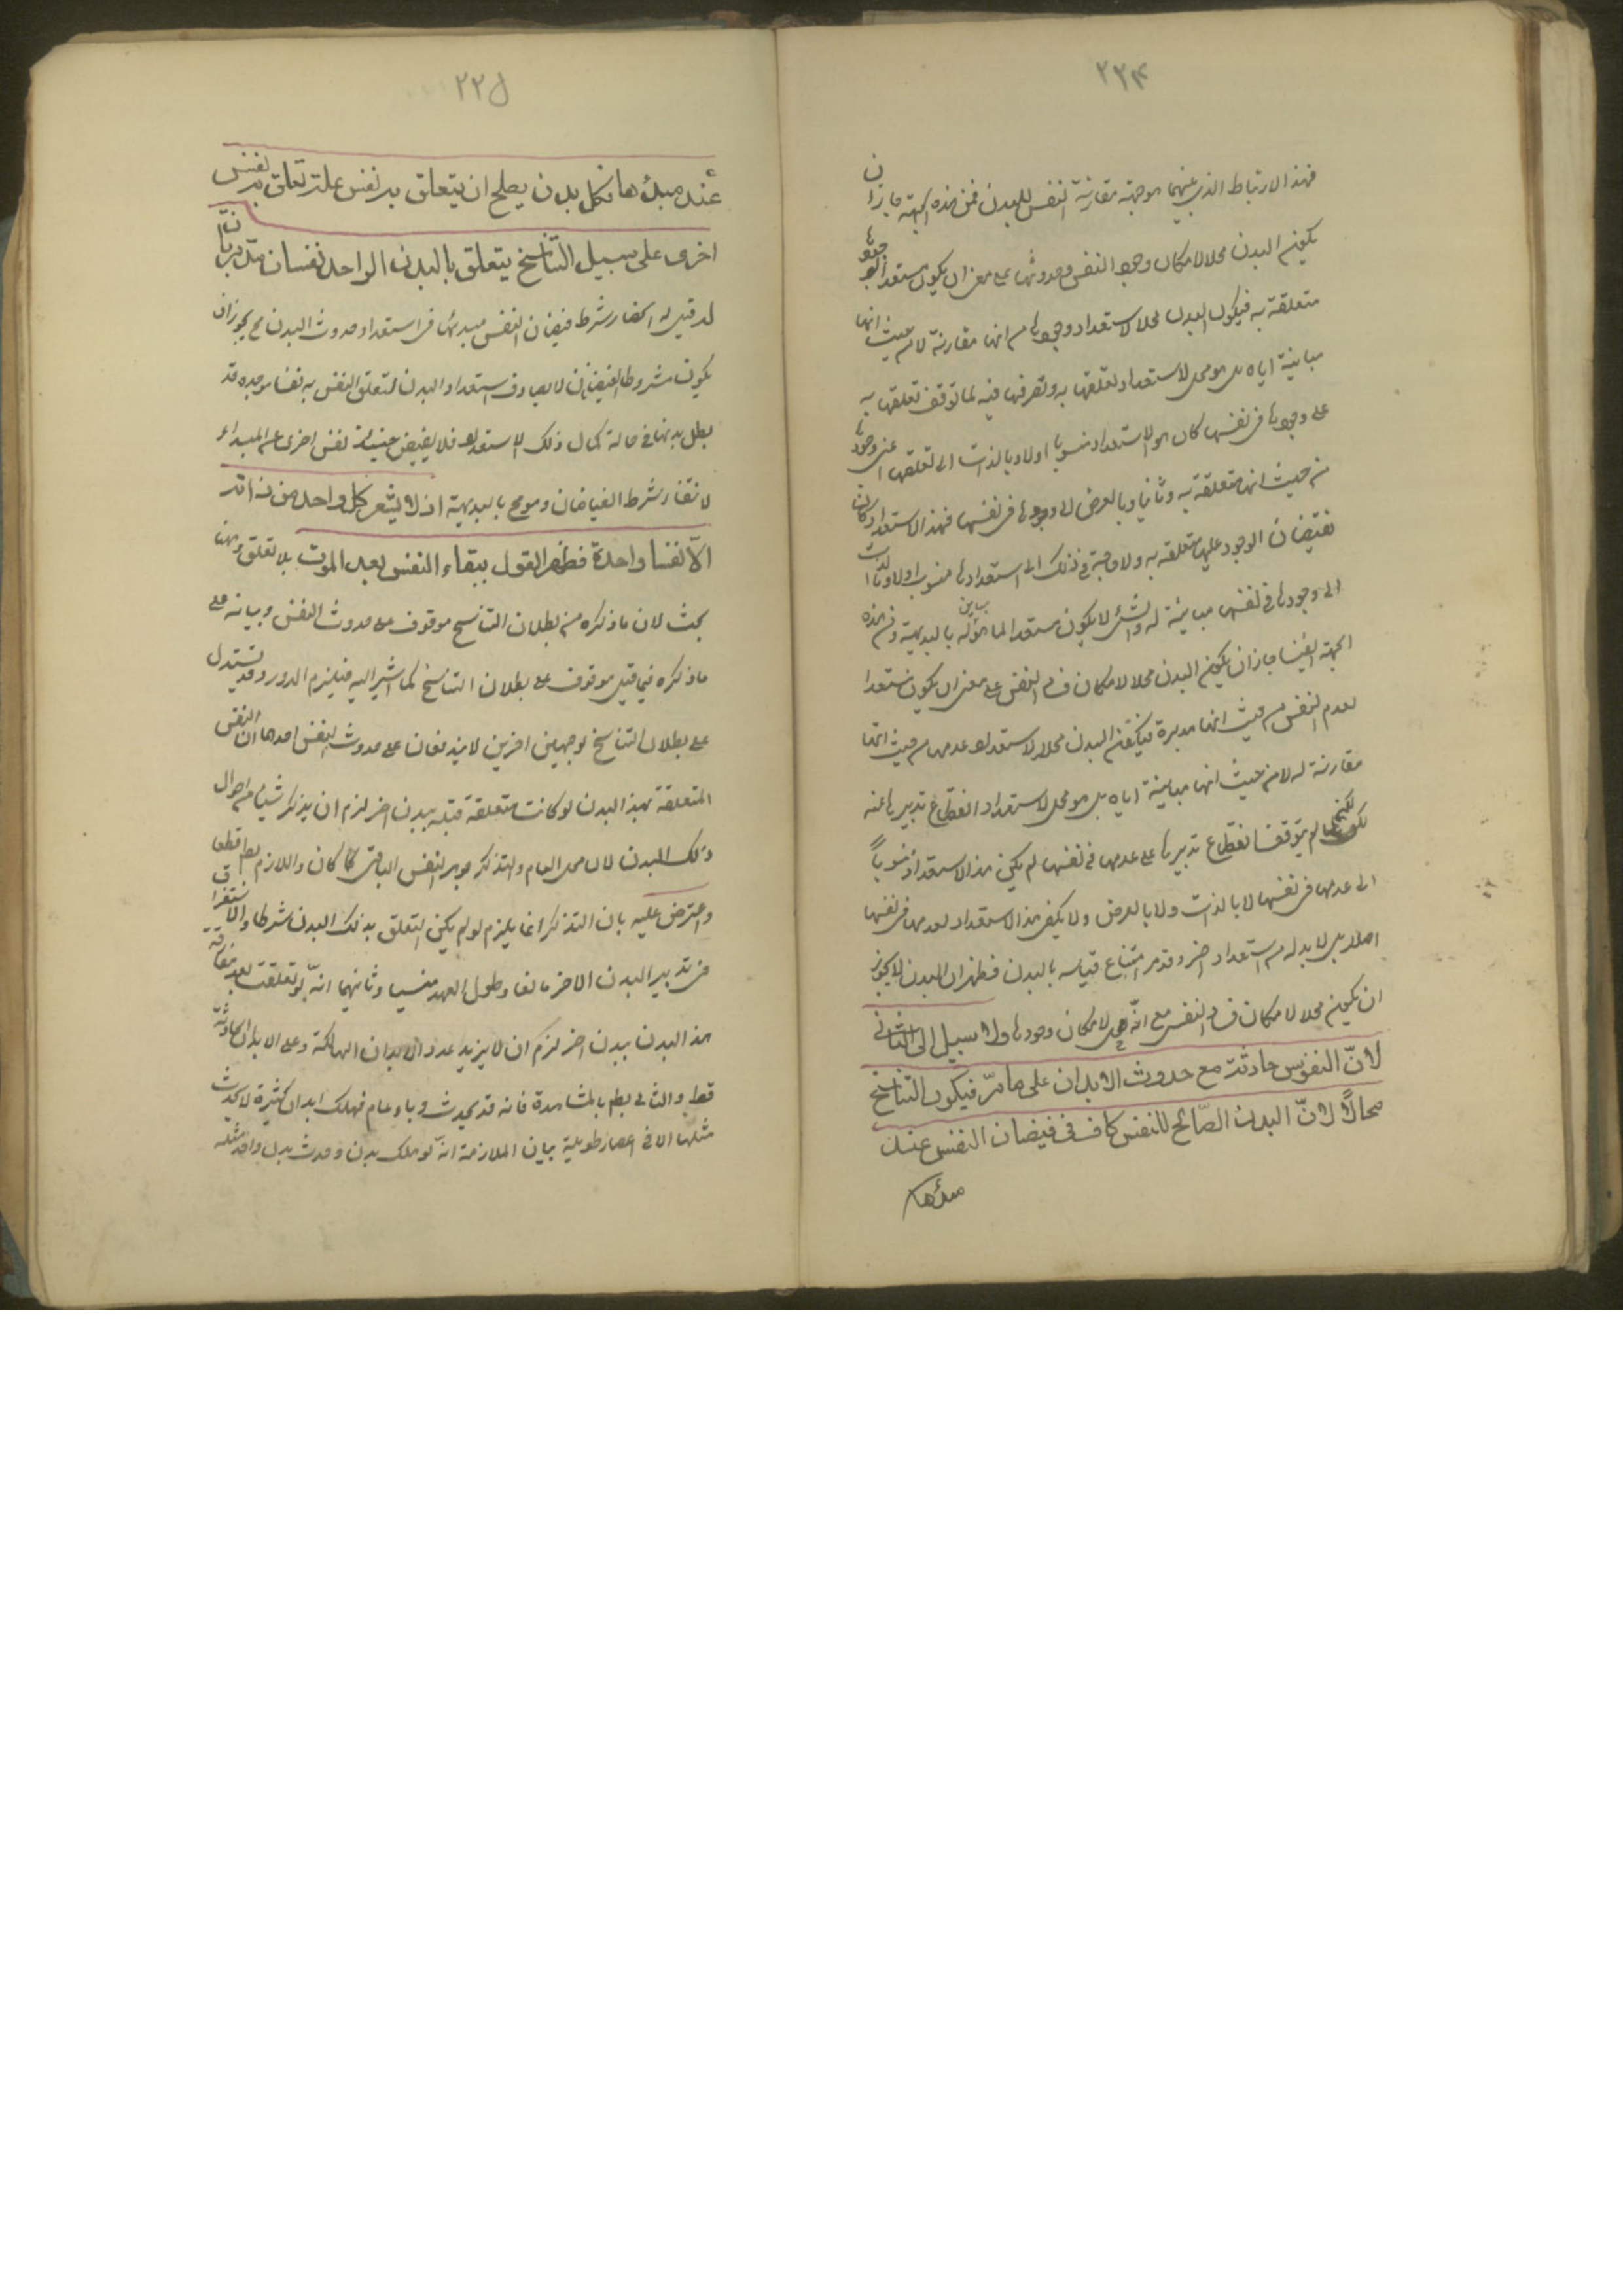 ٢٢٤
فهذا الارتباط الذي بينهما هو جهة مقارنة النفس للبدن فمن هذه الجهة جاز ان
يكون البدن محلا لامكان وجود النفس وحدوثها على معنى ان يكون مستعدا لوجودها
متعلقة به فيكون البدن محلا لاستعداد وجودها من انها مقارنة لا من حيث انها
مباينة اياه بل هو محل لاستعداد تعلقها به وتصرفها فيه لما توقف تعلقها به
على وجودها في نفسها كان هو الاستعداد منسوبا اولا وبالذات الى تعلقها اعني وجودها
من حيث انها متعلقة به وثانيا وبالعرض الى وجودها في نفسها فهذا الاستعداد كاف
لفيضان الوجود عليها متعلقة به ولا حاجة في ذلك الى استعدادها منسوب اولا وبالذات
الى وجودها في نفسها مباينة له والشئ لا يكون مستعدا لما هو مباين له بالبديهة ومن هذه
الجهة ايضا جاز ان يكون البدن محلا لامكان فساد النفس على معنى ان يكون مستعدا
لعدم النفس من حيث انها مدبرة فيكون البدن محلا لاستعداد عدمها من حيث انها
مقارنة له لا من حيث انها مباينة اياه بل هو محل لاستعداد انقطاع تدبيرها عنه
لكن لم يتوقف انقطاع تدبيرها على عدمها في نفسها لم يكن هذا الاستعداد منسوباً
الى عدمها في نفسها لا بالذات ولا بالعرض ولا يكفي هذا الاستعداد لعدمها في نفسها
اصلا بل لا بد له من استعداد اخر وقد مر امتناع قيامه بالبدن فظهر ان البدن لا يجوز
ان يكون محلا لامكان فساد النفس مع انّه محل لامكان وجودها ولا سبيل الى الثاني
لانّ النفوس حادثة مع حدوث الابدان على ما مرّ فيكون التناسخ
محالاً لانّ البدن الصّالح للنفس كاف في فيضان النفس عند
مبدئها
٢٢٥
عند مبدئها فكل بدن يصلح ان يتعلق به نفس على تعلق به نفس
اخرى على سبيل التناسخ يتعلق بالبدن الواحد نفسان مدبرتان
لو قيل له انحصار شرط فيضان النفس مبدئها في استعداد حدوث البدن مح يجوز ان
يكون مشروطا ايضا بان لا يصادف استعداد البدن لتعلق النفس به نفسا موجودة قد
بطل بدنها في حالة كمال ذلك الاستعداد فلا يفيض حينئذ نفس اخرى على المبداء
لانتفاء شرط الفيضان وهو مح بالبديهة اذ لا يشعر كل واحد من ذاته
الا نفسا واحدة فظهر القول ببقاء النفس بعد الموت بلا تعلق وههنا
بحث لان ما ذكره من بطلان التناسخ موقوف على حدوث النفس وبيانه على
ما ذكره فيما قبل موقوف على بطلان التناسخ كما اشير اليه فيلزم الدور وقد يستدل
على بطلان التناسخ بوجهين اخرين لا يتوقفان على حدوث النفس احدهما ان النفس
المتعلقة بهذا البدن لو كانت متعلقة قبله ببدن اخر لزم ان يتذكر شيئا من احوال
ذلك البدن لان محل العلم والتذكر هو جوهر النفس الباقي كما كان واللازم بط قطعا
واعترض عليه بان التذكر انما يلزم لو لم يكن التعلق بذلك البدن شرطا والاستغراق
في تدبير البدن الاخر مانعا وطول العهد منسيا وثانيهما انّه لو تعلقت بعد مفارقة
هذا البدن ببدن اخر لزم ان لا يزيد عدد الابدان الهالكة على الابدان الحادثة
قط والتالي بط بالمشاهدة فانه قد يحدث وباء عام فيهلك ابدان كثيرة لا يحدث
مثلها الا في اعصار طويلة بيان الملازمة انّه لو هلك بدن وحدث بدن واحد مثله